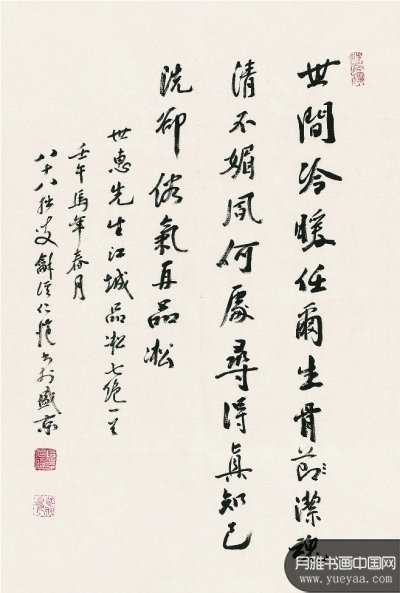 世間冷暖任爾生骨節潔魂
清不媚風何處尋得真知己
洗卻俗氣再品凇
世惠先生江城品凇七絕一首
壬午馬年春月
八十八拙叟龢溪仁愷書於盛京
月雅书画中国网
www.yueyaa.com